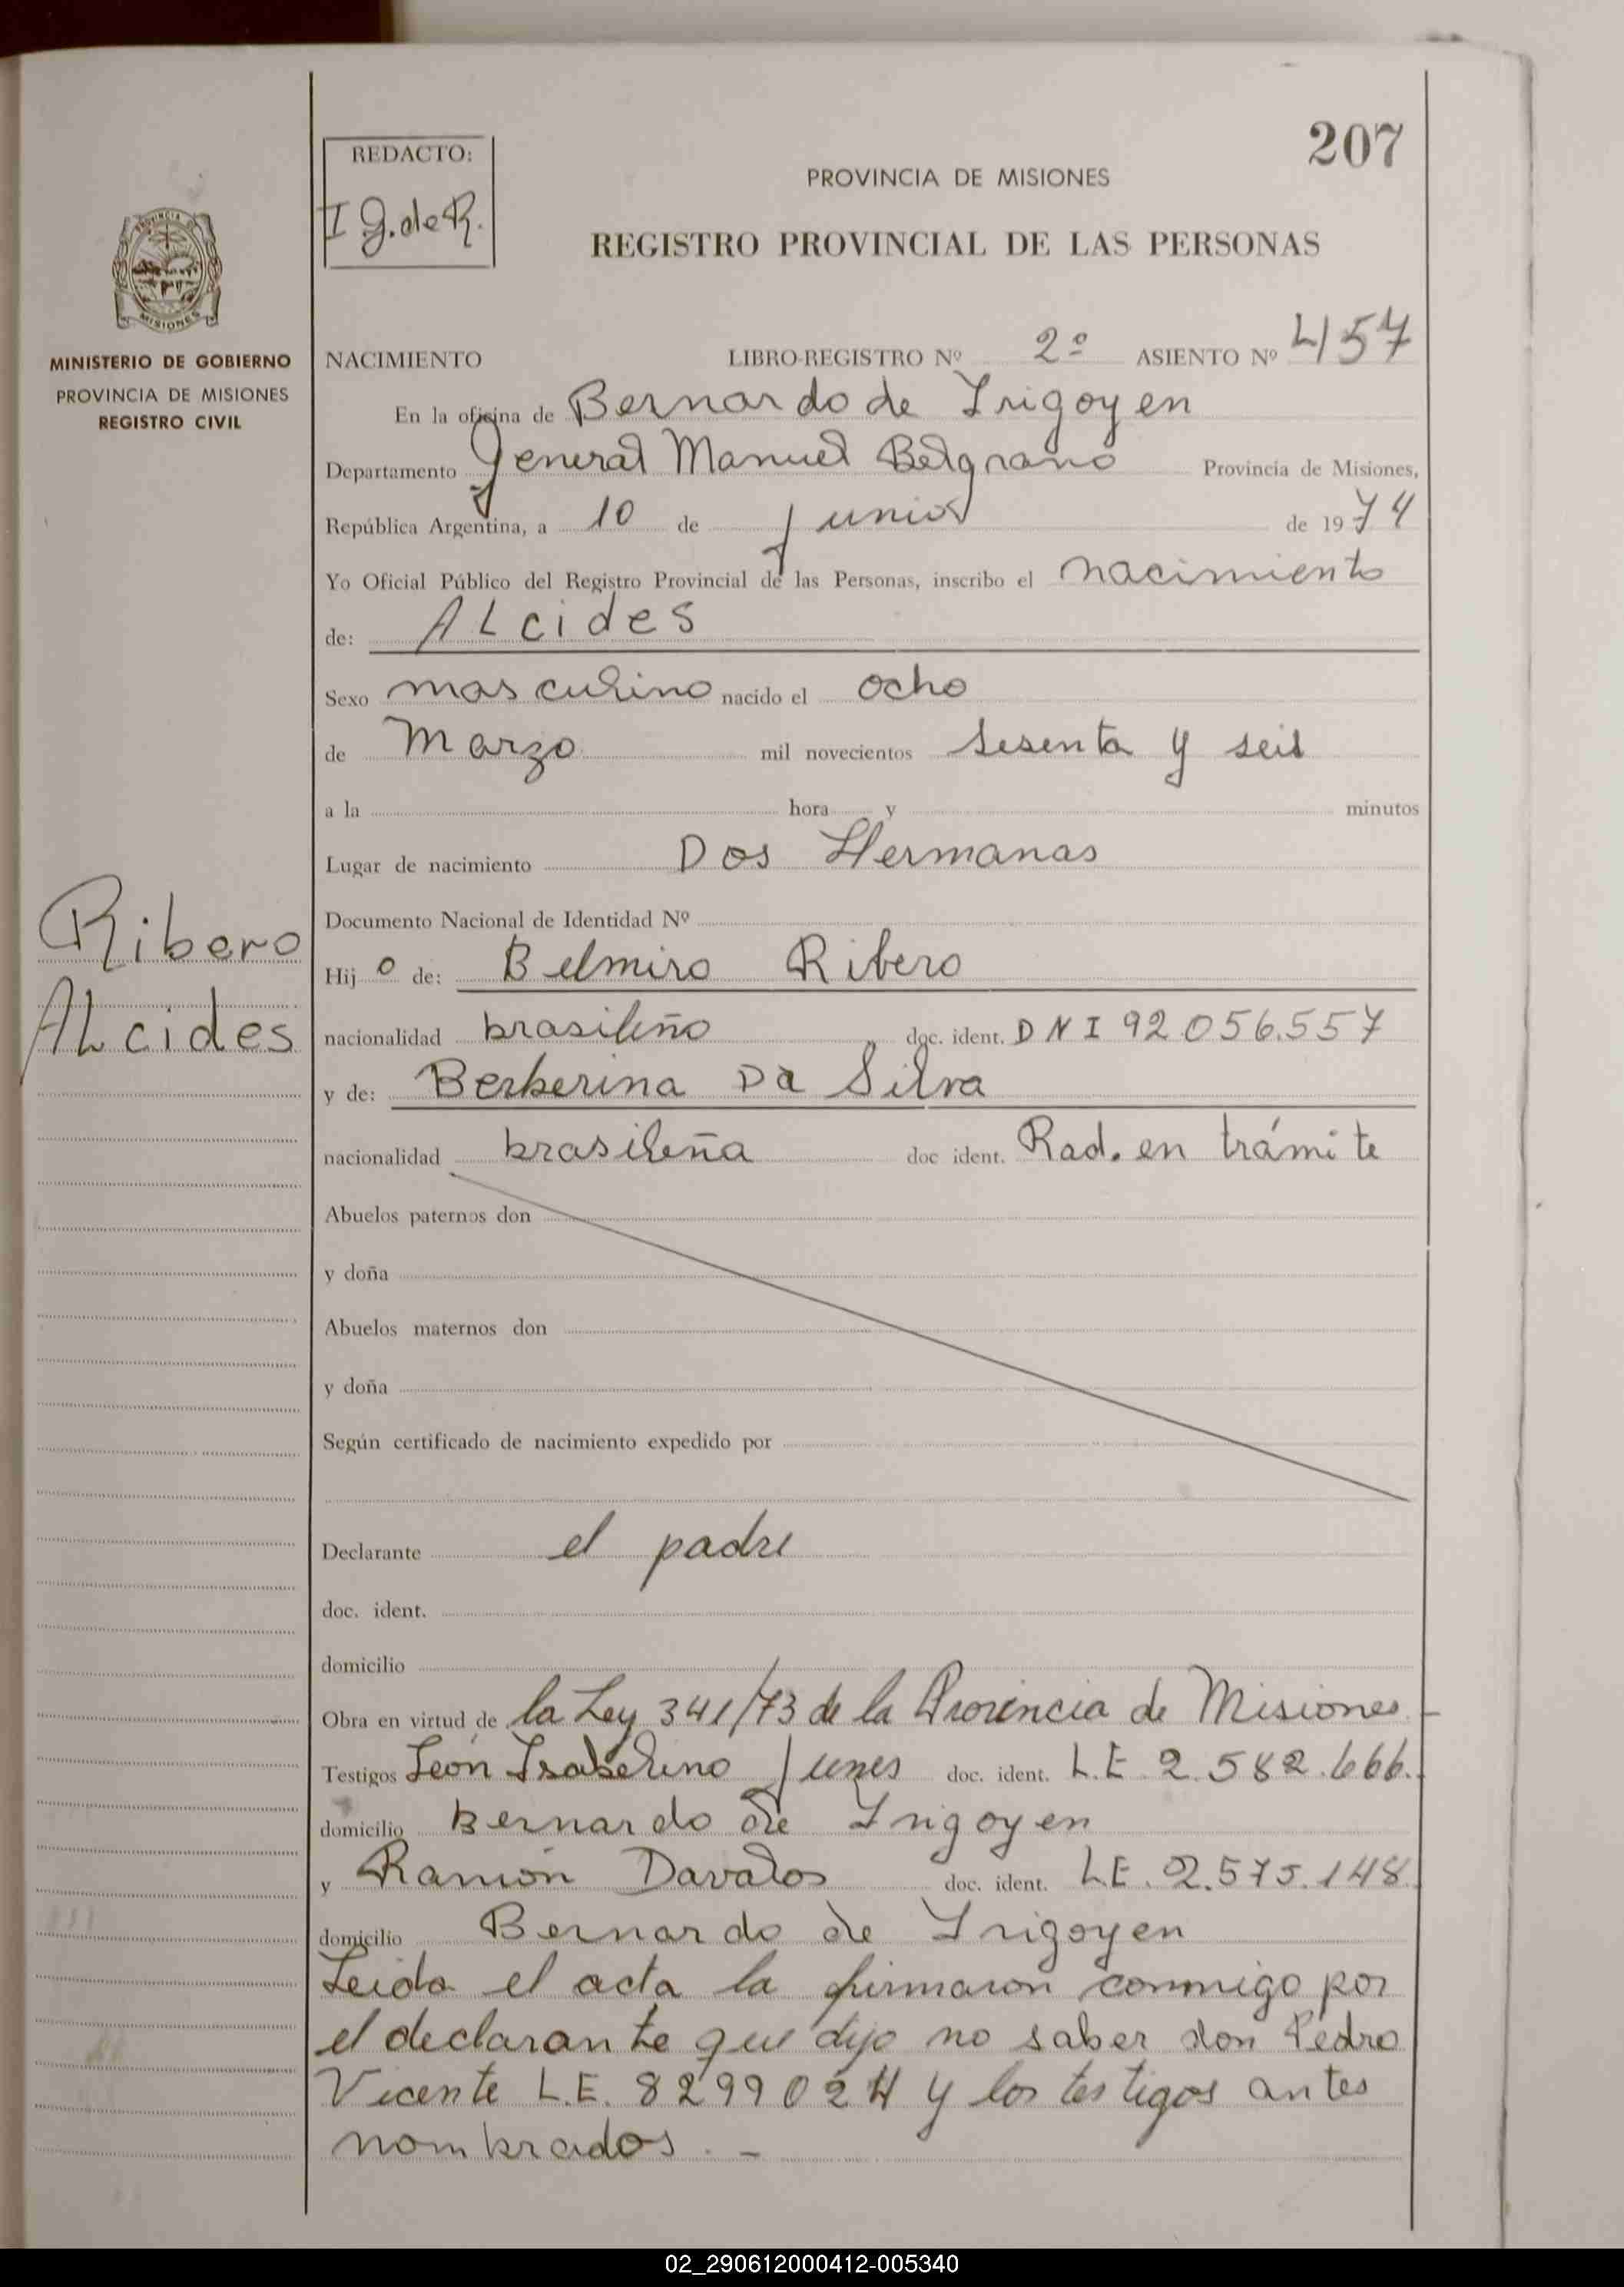 207
REDACTO:
I G. de R.
PROVINCIA DE MISIONES
REGISTRO PROVINCIAL DE LAS PERSONAS
PROVINCIA DE
MISIONES
MINISTERIO DE GOBIERNO
PROVINCIA DE MISIONES
REGISTRO CIVIL
NACIMIENTO LIBRO-REGISTRO Nº 2º ASIENTO Nº 457
En la oficina de Bernardo de Irigoyen
Departamento General Manuel Belgrano Provincia de Misiones,
República Argentina, a 10 de junio de 1974
Yo Oficial Público del Registro Provincial de las Personas, inscribo el nacimiento
de: ALcides
Sexo masculino nacido el ocho
de Marzo mil novecientos sesenta y seis
a la hora y minutos
Lugar de nacimiento Dos Hermanas
Documento Nacional de Identidad Nº
Ribero
ALcides
Hij o de: Belmiro Ribero
nacionalidad brasileño doc. ident. DNI 92.056.557
y de: Berberina Da Silva
nacionalidad brasileña doc ident. Rad. en trámite
Abuelos paternos don
y doña
Abuelos maternos don
y doña
Según certificado de nacimiento expedido por
Declarante el padre
doc. ident.
domicilio
Obra en virtud de la Ley 341/73 de la Provincia de Misiones
Testigos León Isabelino Junes doc. ident. L.E 2.582.666.
domicilio Bernardo de Irigoyen
y Ramón Davalos doc. ident. L.E. 2.575.148.
domicilio Bernardo de Irigoyen
Leida el acta la firmaron conmigo por
el declarante que dijo no saber don Pedro
Vicente L.E. 8299024 y los testigos antes
nombrados. -
02_290612000412-005340